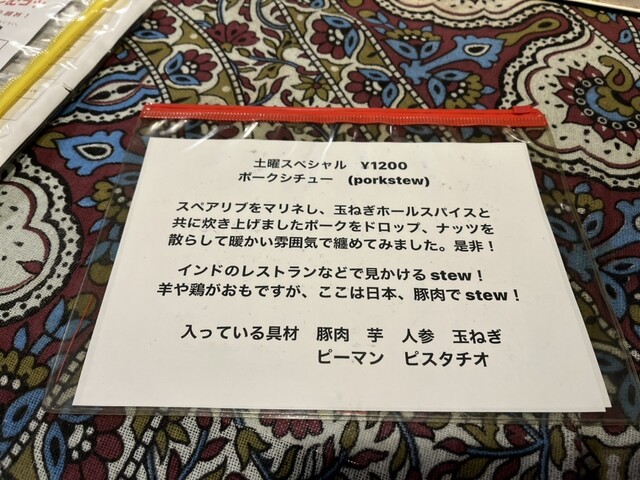 土曜スペシャル ¥1200
ポークシチュー (porkstew)
スペアリブをマリネし、玉ねぎホールスパイスと
共に炊き上げましたポークをドロップ、ナッツを
散らして暖かい雰囲気で纏めてみました。是非！
インドのレストランなどで見かける stew！
羊や鶏がおもですが、ここは日本、豚肉で stew！
入っている具材 豚肉 芋 人参 玉ねぎ
ピーマン ピスタチオ